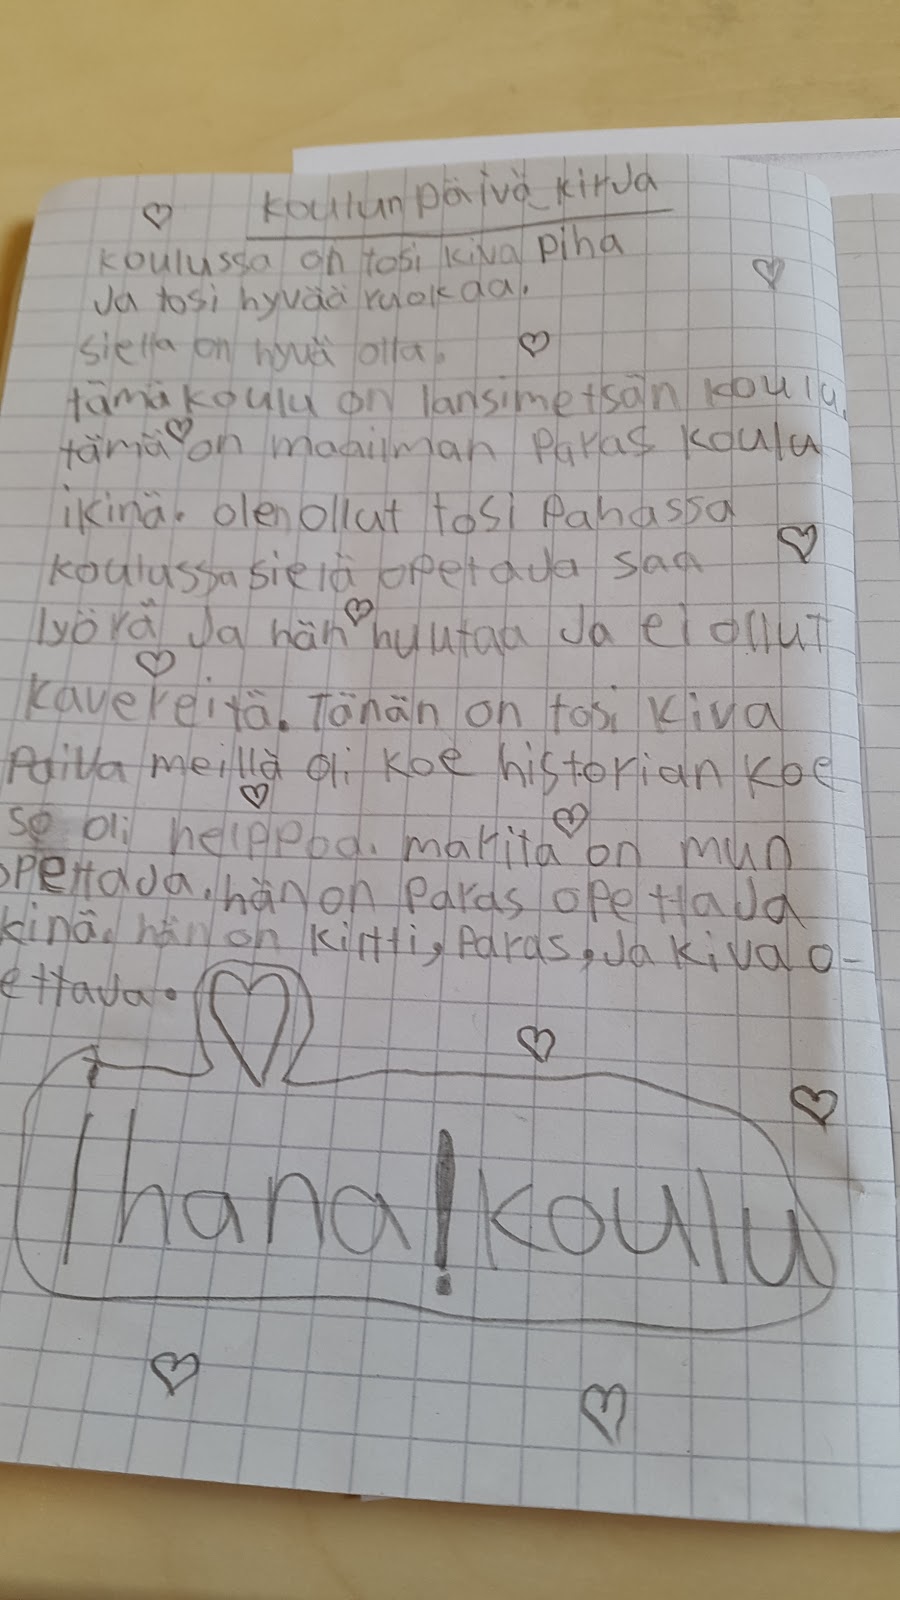 koulun päivä kirja
koulussa on tosi kiva piha
ja tosi hyvää ruokaa.
siella on hyvä olla.
tämä koulu on lansimetsän koulu.
tämä on maailman paras koulu
ikinä. olen ollut tosi pahassa
koulussa sielä opetaja saa
lyörä ja hän huutaa ja ei ollut
kavereitä. Tänän on tosi kiva
paiva meillä oli koe historian koe
se oli helppoa. marita on mun
opettaja. hän on paras opettaja
kinä. hän on kiltti, paras, ja kiva o-
ettaja.
Ihana! koulu